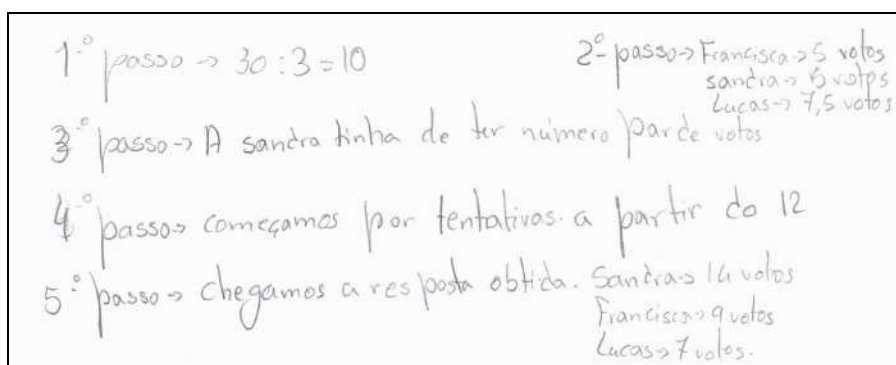 1.º passo → 30 : 3 = 10
2º passo → Francisca → 5 votos
sandra → 5 votos
Lucas → 7,5 votos
3.º passo → A sandra tinha de ter número par de votos
4.º passo → começamos por tentativas. a partir do 12
5.º passo → chegamos a resposta obtida. Sandra → 14 votos
Francisca → 9 votos
Lucas → 7 votos.